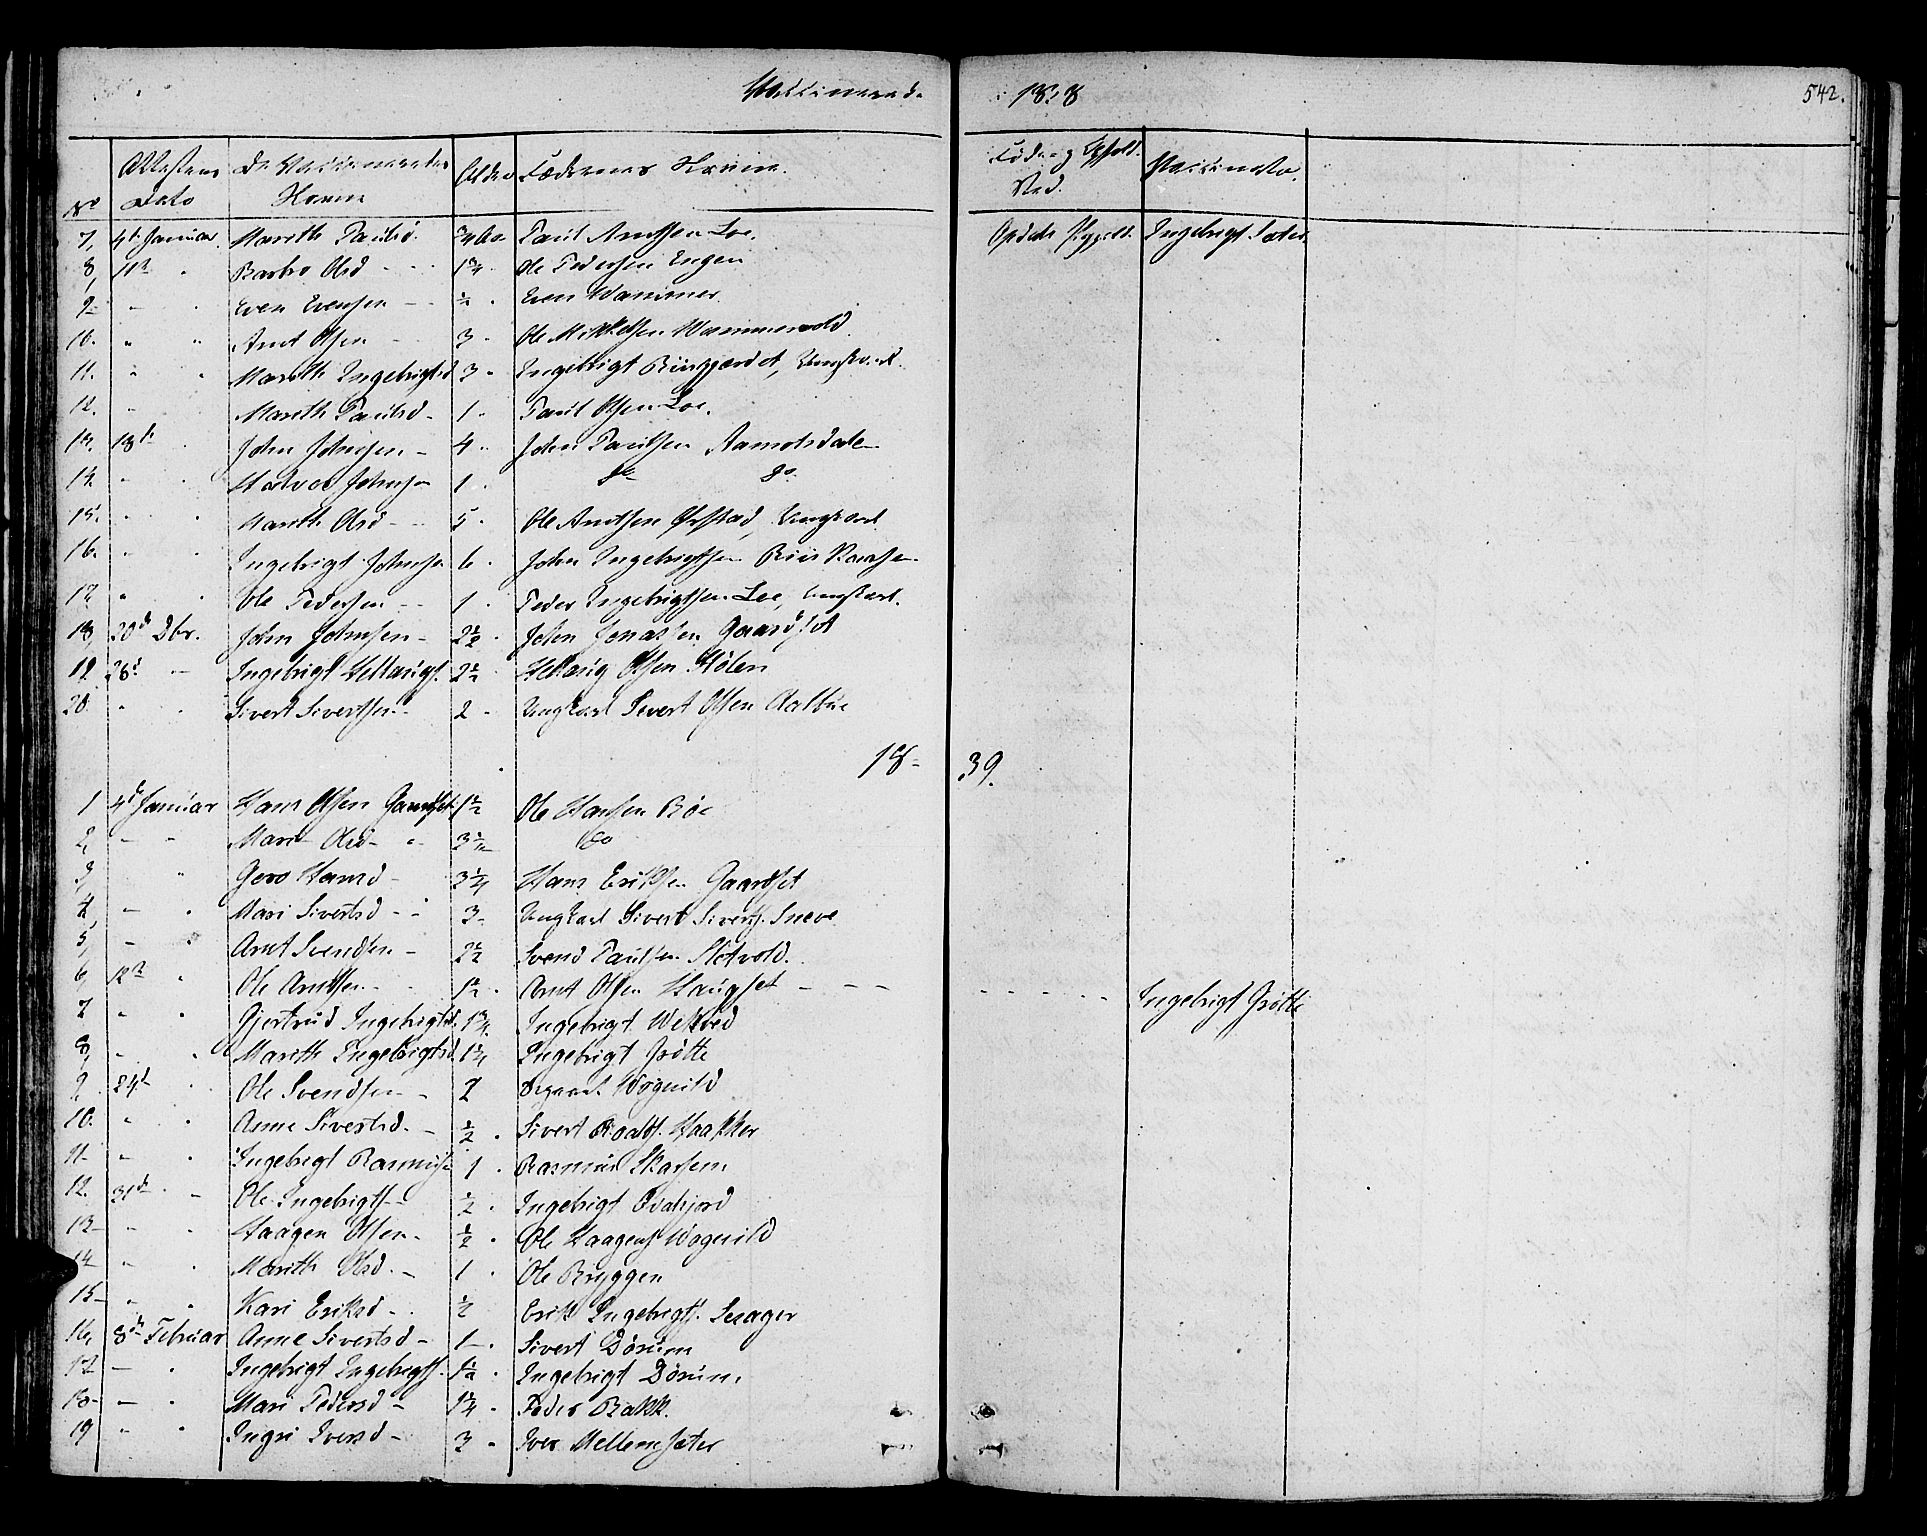 Vaccinerede 1838 542.
No Attestens Dato De Vaccineredes Navne Alder Fædrenes Navne. Føde- og Ophold. Sted. Vaccinator.
7, 4de Januar Marith Paulsd. 3/4 Aar Paul Arntsen Loe. Opdals Præstegjeld. Ingebrigt Sæter.
8, 11te " Barbro Olsd - - 1 3/4 - Ole Pedersen Engen
9 - " Even Evensen - - Even Wammer
10. " " Arnt Olsen - - 3 - Ole Mikkelsen Wammervold
11. " " Marith Ingebrigtsd 3 - Ingebrigt Riisgjerdet, Ungkarl.
12. " Marith Paulsd - 1 - Paul Olsen Loe.
13. 18de John Johnsen - 4 - John Paulsen Aamotsdalen
14. - - Halvor Johnsen 1 - do do
15. " " Marith Olsd - - 5 - Ole Arntsen Ørstad, Ungkarl
16. " " Ingebrigt Johnsen 6 - John Ingebrigtsen Riis
17. " " Ole Pedersen - - 1 - Peder Ingebrigtsen Loe, Ungkarl.
18, 20de Dbr. John Johnsen - 2 1/2 - John Jonassen Gaardset
19 28de - Ingebrigt Hellaugs. 2 1/2 - Hellaug Olsen Hölen
20. " " Sivert Sivertsen - 2 - Ungkarl Sivert Olsen Aalbue
18-39.
1 4de Januar Hans Olsen Gaardset 1 1/2 Ole Hansen Böe
2, - - Mari Olsd - - 3 1/2 do
3, " Goro Hansd - 3 1/4 Hans Eriksen Gaardset
4, - " Mari Sivertsd - - 3 - Ungkarl Sivert Siverts. Sneve
5, - " Arnt Svendsen - 2 1/2 Svend Paulsen Slotvold.
6, 12te " Ole Arntsen - - 1 1/2 - Arnt Olsen Haugset - - - - - - - - Ingebrigt Grötte
7 " " Gjertrud Ingebrigtsd. 1 3/4 Ingebrigt Wekved
8, - " Marith Ingebrigtsd. 1 1/4 Ingebrigt Grötte
9, 24de " Ole Svendsen - 2 Wognild
10. " " Anne Sivertsd. - 1/2 - Sivert Haakker
11 - " Ingebrigt Rasmusse 1 - Rasmus Skarsem
12. 31de " - Ole Ingebrigts - 1/2 - Ingebrigt
13 - " " Haagen Olsen - 1/2 - Ole Haagens. Wognild
14 - " Marith Olsd. - 1 - Ole Bryggen
15 - " Kari Eriksd - - 1/2 Erik Ingebrigts. Lesager
16, 8de Februar Anne Sivertsd - 1 - Sivert Dörum
17 - " Ingebrigt Ingebrigts. 1 1/2 - Ingebrigt Dörum
18 - - " Mari Pedersd - 1 1/4 - Peder Bakk.
19 " " Ingri Iversd - 3 - Iver Mellemsæter